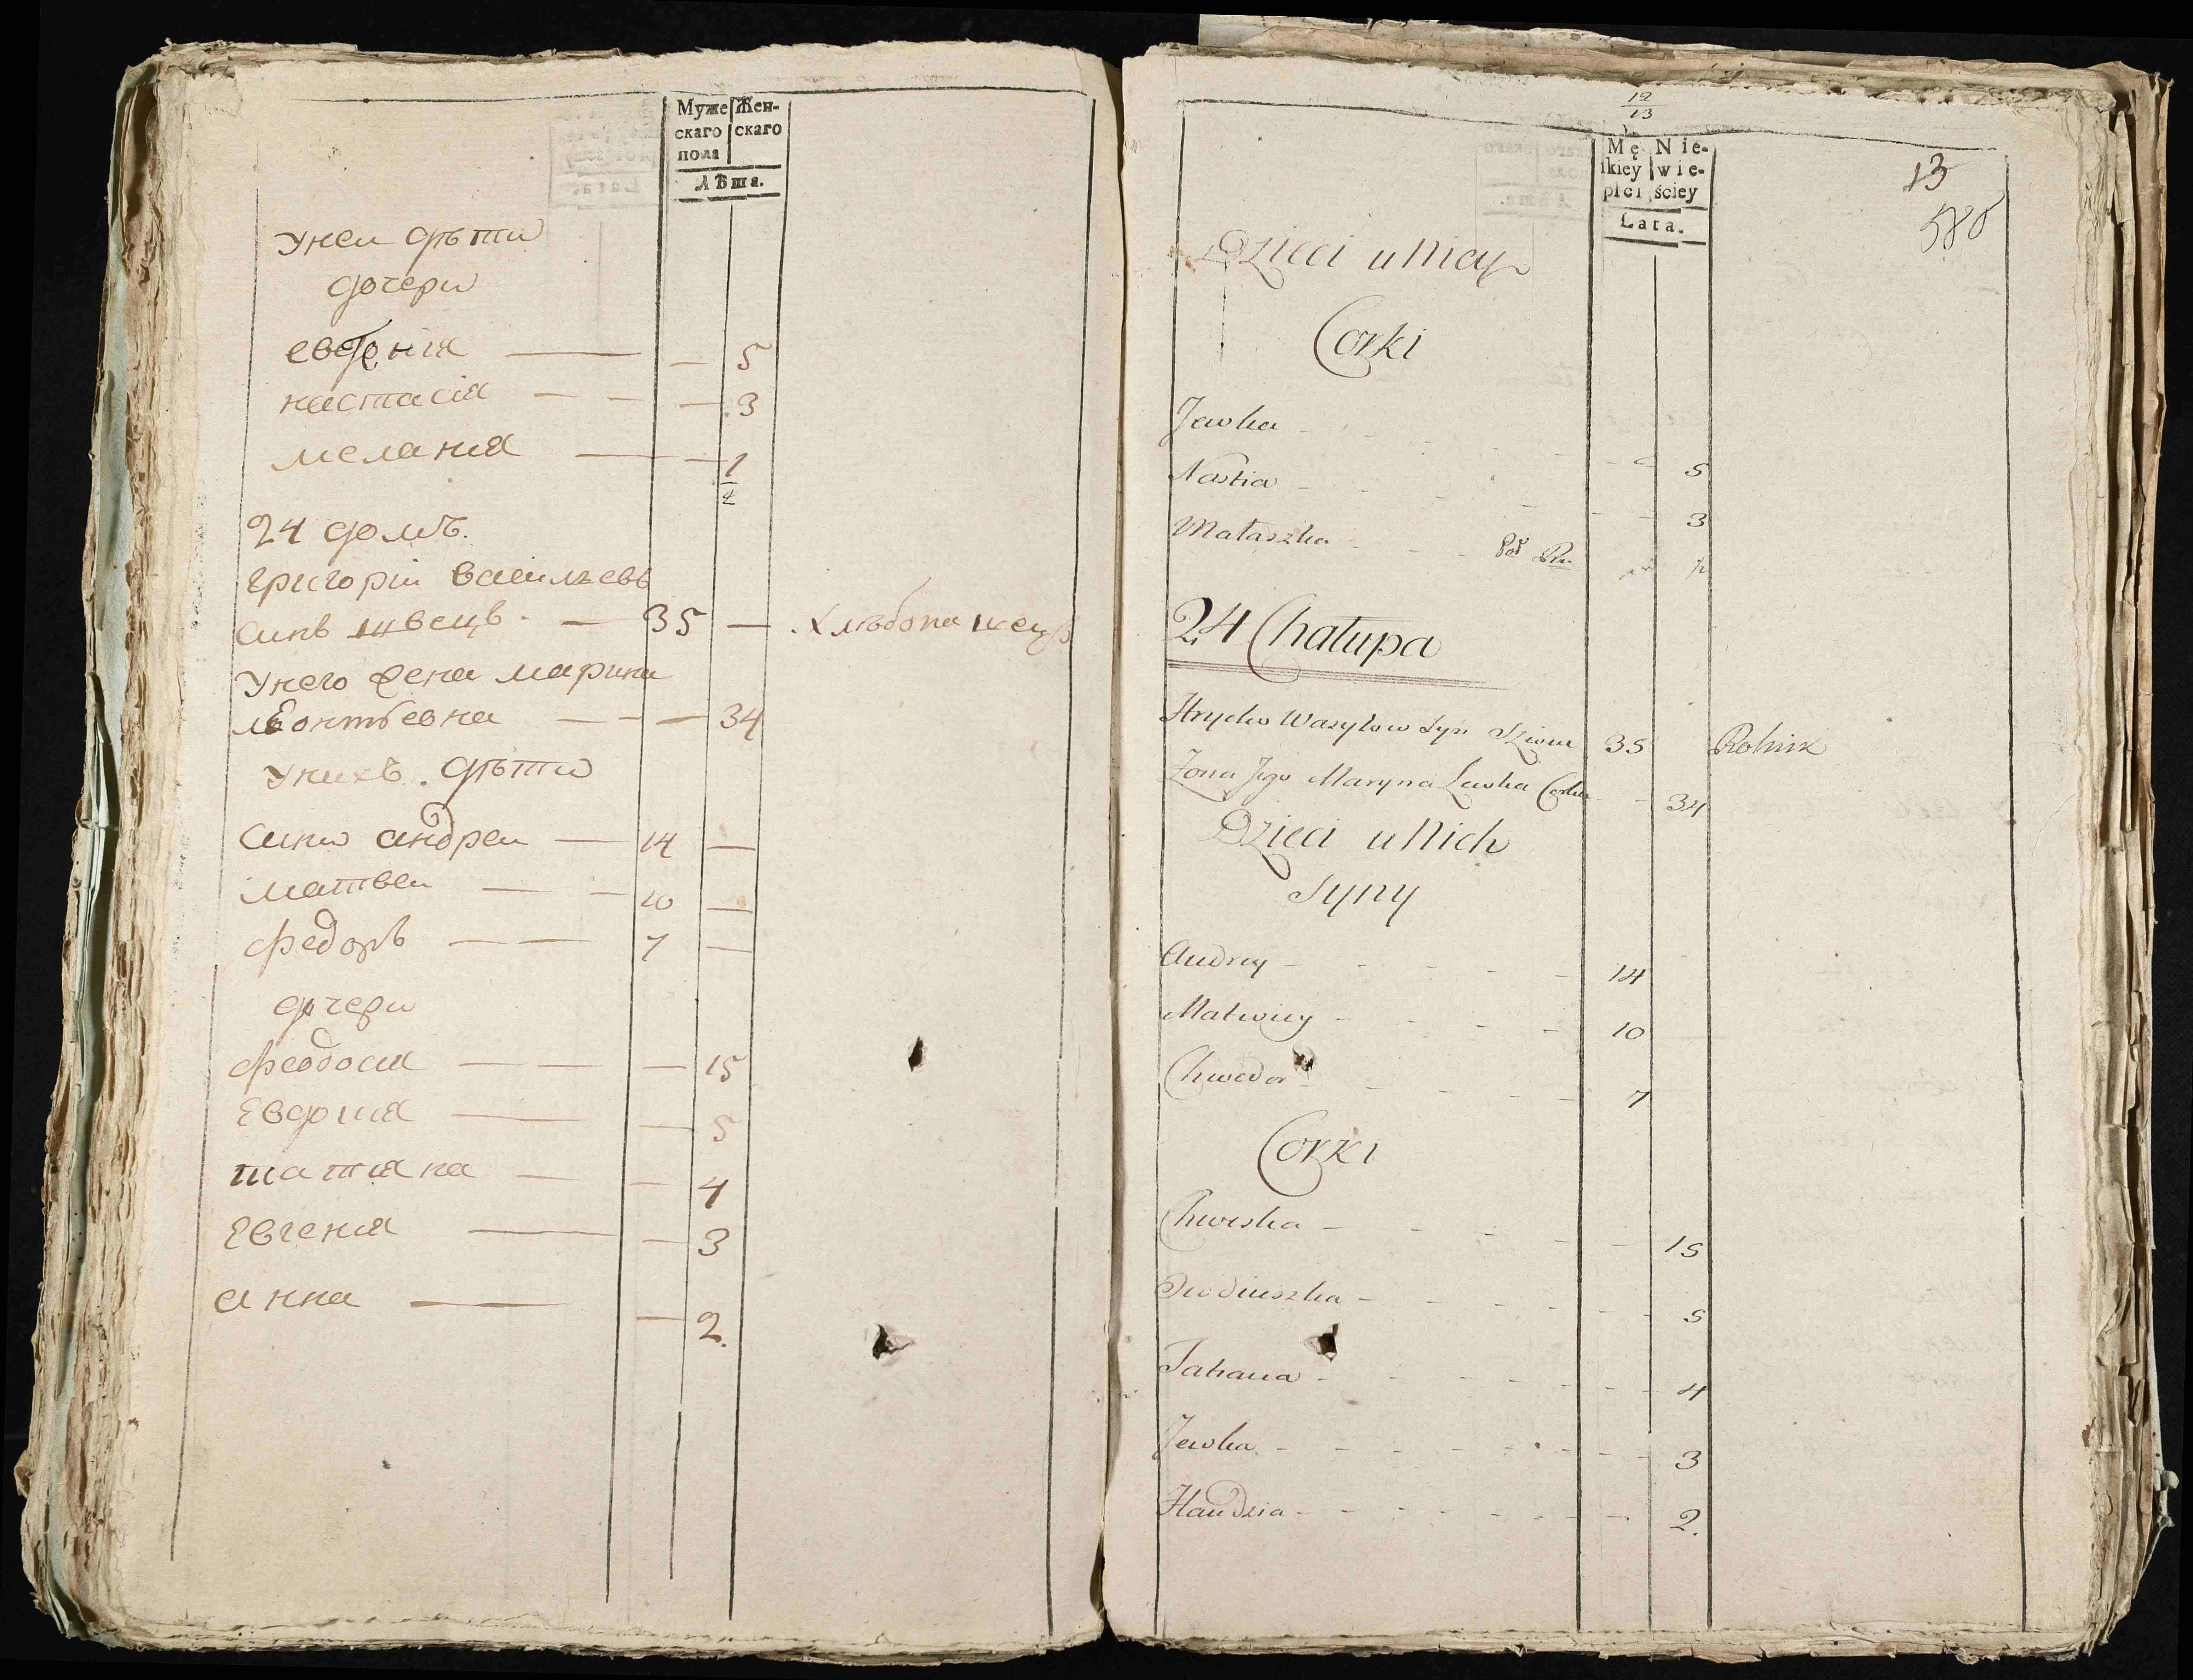 Муже Жен-
скаго скаго
пола
Лѣта.
Унеи дѣти
дочери
евдокия — — 5
настасія — — — 3
мелания — — 1/2
24 домъ.
григорій васильевъ
синъ швецъ. — 35 — хлѣбопашецъ
Унего жена марина
леонтьевна — — — 34
Унихъ дѣти
сини андреи — 14 —
матвеи — — 10 —
федоръ — — 7 —
дочери
феодосия — — — 15
Евдокия — — 5
татияна — — 4
Евгения — — 3
анна — — 2.
12/13
Mę Nie-
skiey wie-
płci ściey
Lata.
13
580
Dzieci u Niey
Corki
Jewka - - - 5
Nastia - - - 3
Małaszka - - - Pół Ru ½
24 Chałupa
Hryćko Wasylow Syn 35 Rolnik
Zona Jego Maryna Lewka Corka - - 34
Dzieci u Nich
Syny
Andrey - - - 14
Matwiey - - - 10
Chwedor - - - 7
Corki
Chweska - - - 15
- - - 5
Tatiana - - - 4
Jewka - - - 3
Handzia - - - 2.